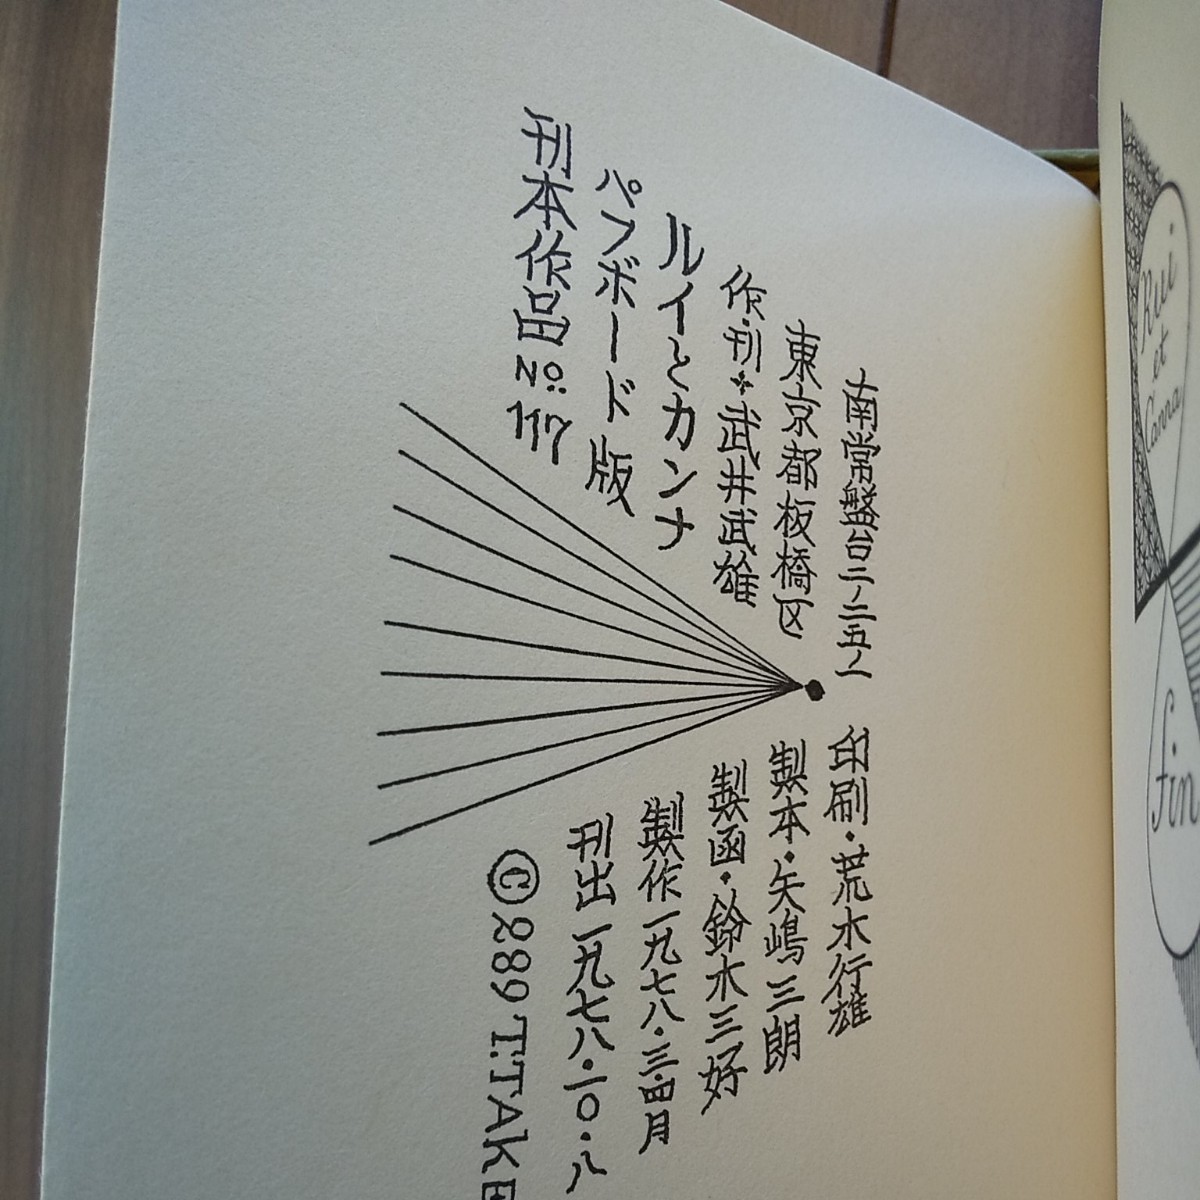 刊本作品No.117
パフボード版
ルイとカンナ
作・刊・武井武雄
東京都板橋区
南常盤台二ノ二五ノ一
印刷・荒木行雄
製本・矢嶋三朗
製函・鈴木三好
製作一九七八・三・四月
刊出一九七八・一〇・八
©289 T.TAKE
Rui
et
Canna
fin